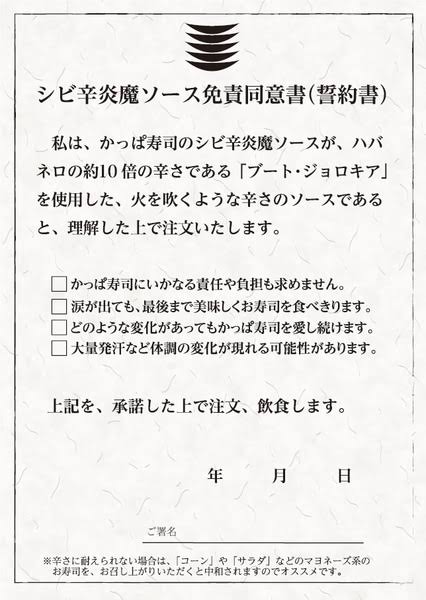 シビ辛炎魔ソース免責同意書(誓約書)
私は、かっぱ寿司のシビ辛炎魔ソースが、ハバ
ネロの約10倍の辛さである「ブート・ジョロキア」
を使用した、火を吹くような辛さのソースである
と、理解した上で注文いたします。
かっぱ寿司にいかなる責任や負担も求めません。
涙が出ても、最後まで美味しくお寿司を食べきります。
どのような変化があってもかっぱ寿司を愛し続けます。
大量発汗など体調の変化が現れる可能性があります。
上記を、承諾した上で注文、飲食します。
年 月 日
ご署名
※辛さに耐えられない場合は、「コーン」や「サラダ」などのマヨネーズ系の
お寿司を、お召し上がりいただくと中和されますのでオススメです。